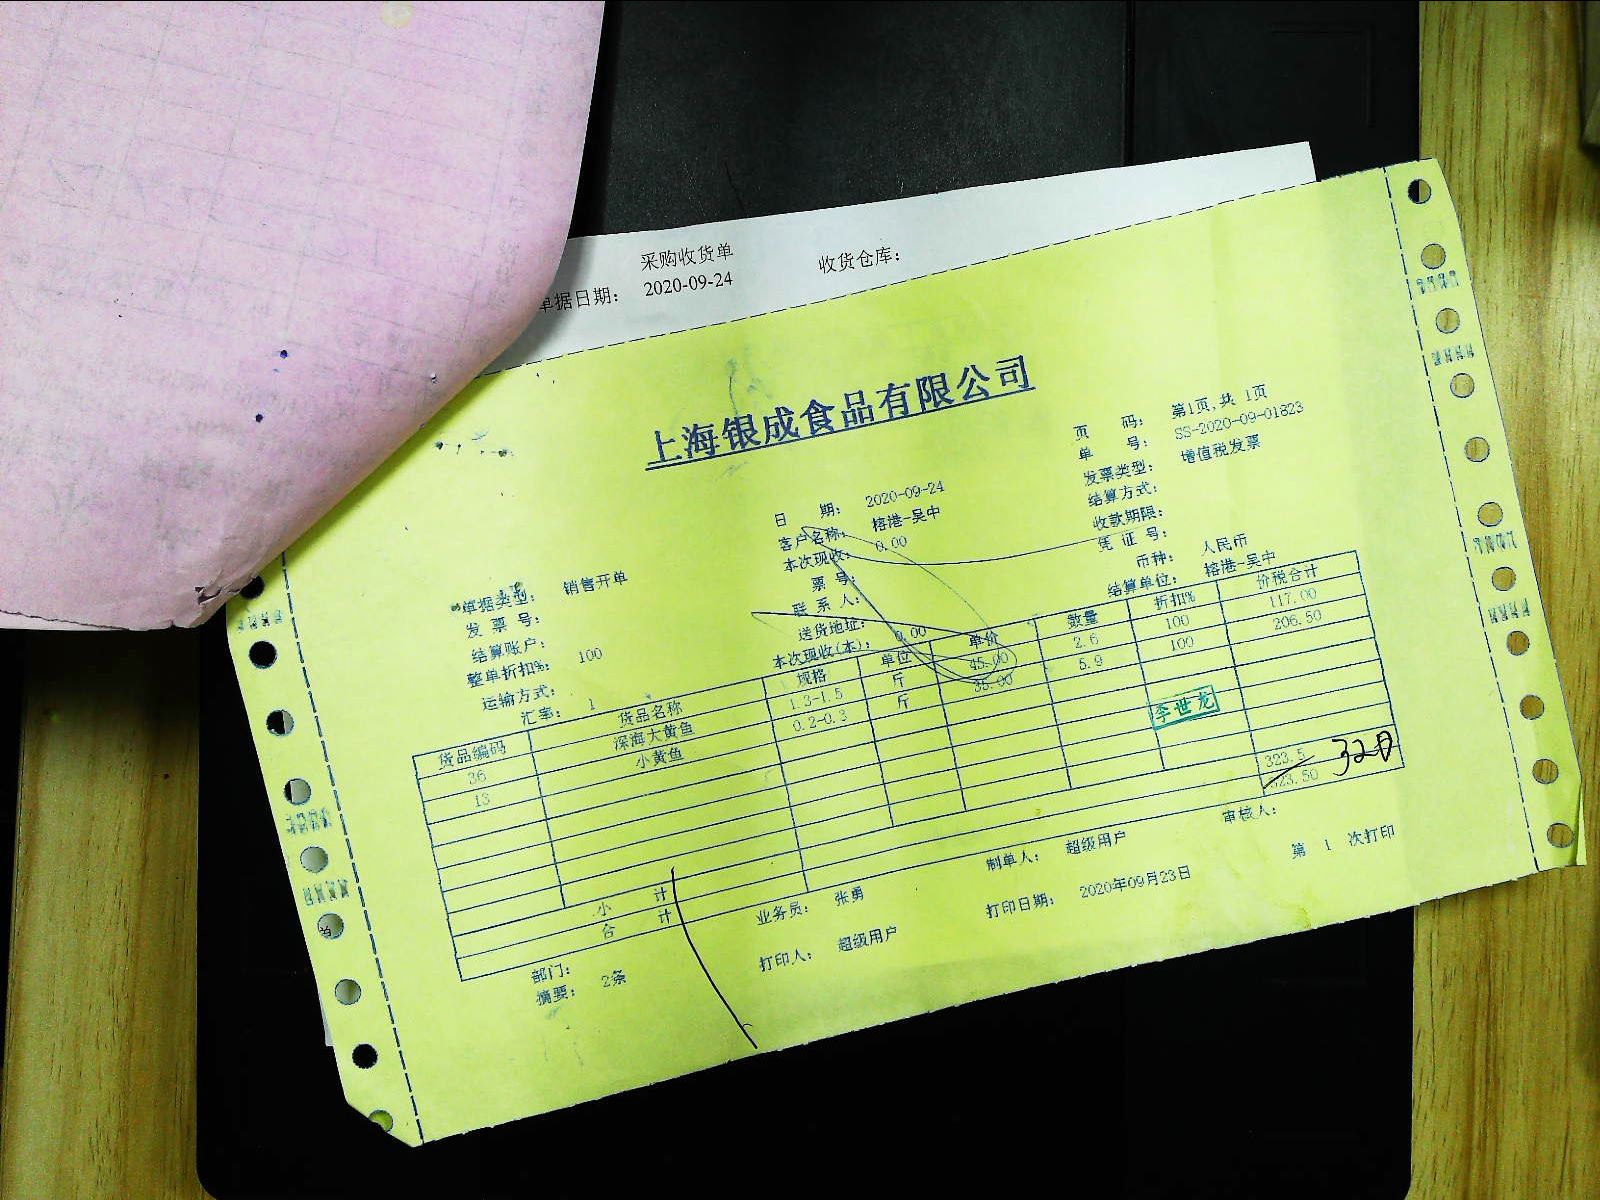 采购收货单
单据日期： 2020-09-24 收货仓库：
上海银成食品有限公司
页 码： 第1页,共 1页
单 号： SS-2020-09-01823
发票类型： 增值税发票
结算方式：
收款期限：
凭 证 号：
币种： 人民币
结算单位： 榕港-吴中
日 期： 2020-09-24
客户名称： 榕港-吴中
本次现收： 0.00
票 号：
联 系 人：
送货地址：
本次现收(本)： 0.00
单据类型： 销售开单
发 票 号：
结算账户：
整单折扣%： 100
运输方式：
汇率： 1
货品编码 货品名称 规格 单位 单价 数量 折扣% 价税合计
36 深海大黄鱼 1.3-1.5 斤 45.00 2.6 100 117.00
13 小黄鱼 0.2-0.3 斤 35.00 5.9 100 206.50
李世龙
小 计 323.5
合 计 323.50
320
部门： 业务员： 张勇 制单人： 超级用户 审核人：
摘要： 2条 打印人： 超级用户 打印日期： 2020年09月23日 第 1 次打印